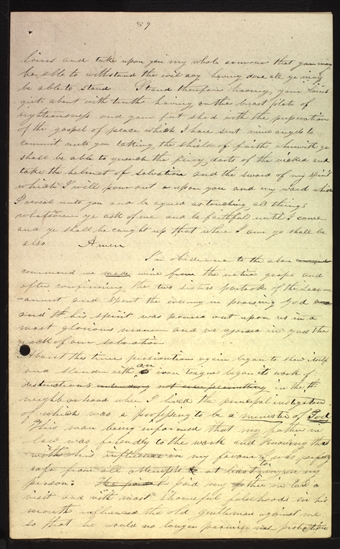 89
loins and take upon you my whole armour that you may
be able to withstand the evil day having done all ye may
be able to stand Stand therefore having your loins
girt about with truth having on the breast plate of
righteousness and your feet shod with the preparation
of the gospel of peace which I have sent mine angels to
commit unto you taking the shield of faith wherewith ye
shall be able to quench the fiery darts of the wicked and
take the helmet of salvation and the sword of my spirit
which I will pour out upon you and my word which
I reveal unto you and be agreed as touching all things
whatsoever ye ask of me and be faithful until I come
and ye shall be caught up that where I am ye shall be
also Amen
In obedience to the above
command we made wine from the native grape and
after confirming the two sisters partook of the sacra-
ament and spent the evening in praising God
and his spirit was poured out upon us in a
most glorious manner and we rejoiced in God the
rock of our salvation
About this time persecution again began to show itself
and slander with an iron tongue began its work of
destruction in the
neighborhood where I lived the principal instigator
of which was a professing to be a minister of God
This man being informed that my father in
law was friendly to the work and knowing that
in my person I was
safe from all attempts at least in my
person: paid my father in law a
visit and with most shameful falsehoods in his
mouth influenced the old gentleman against me
so that he would no longer promise me protection